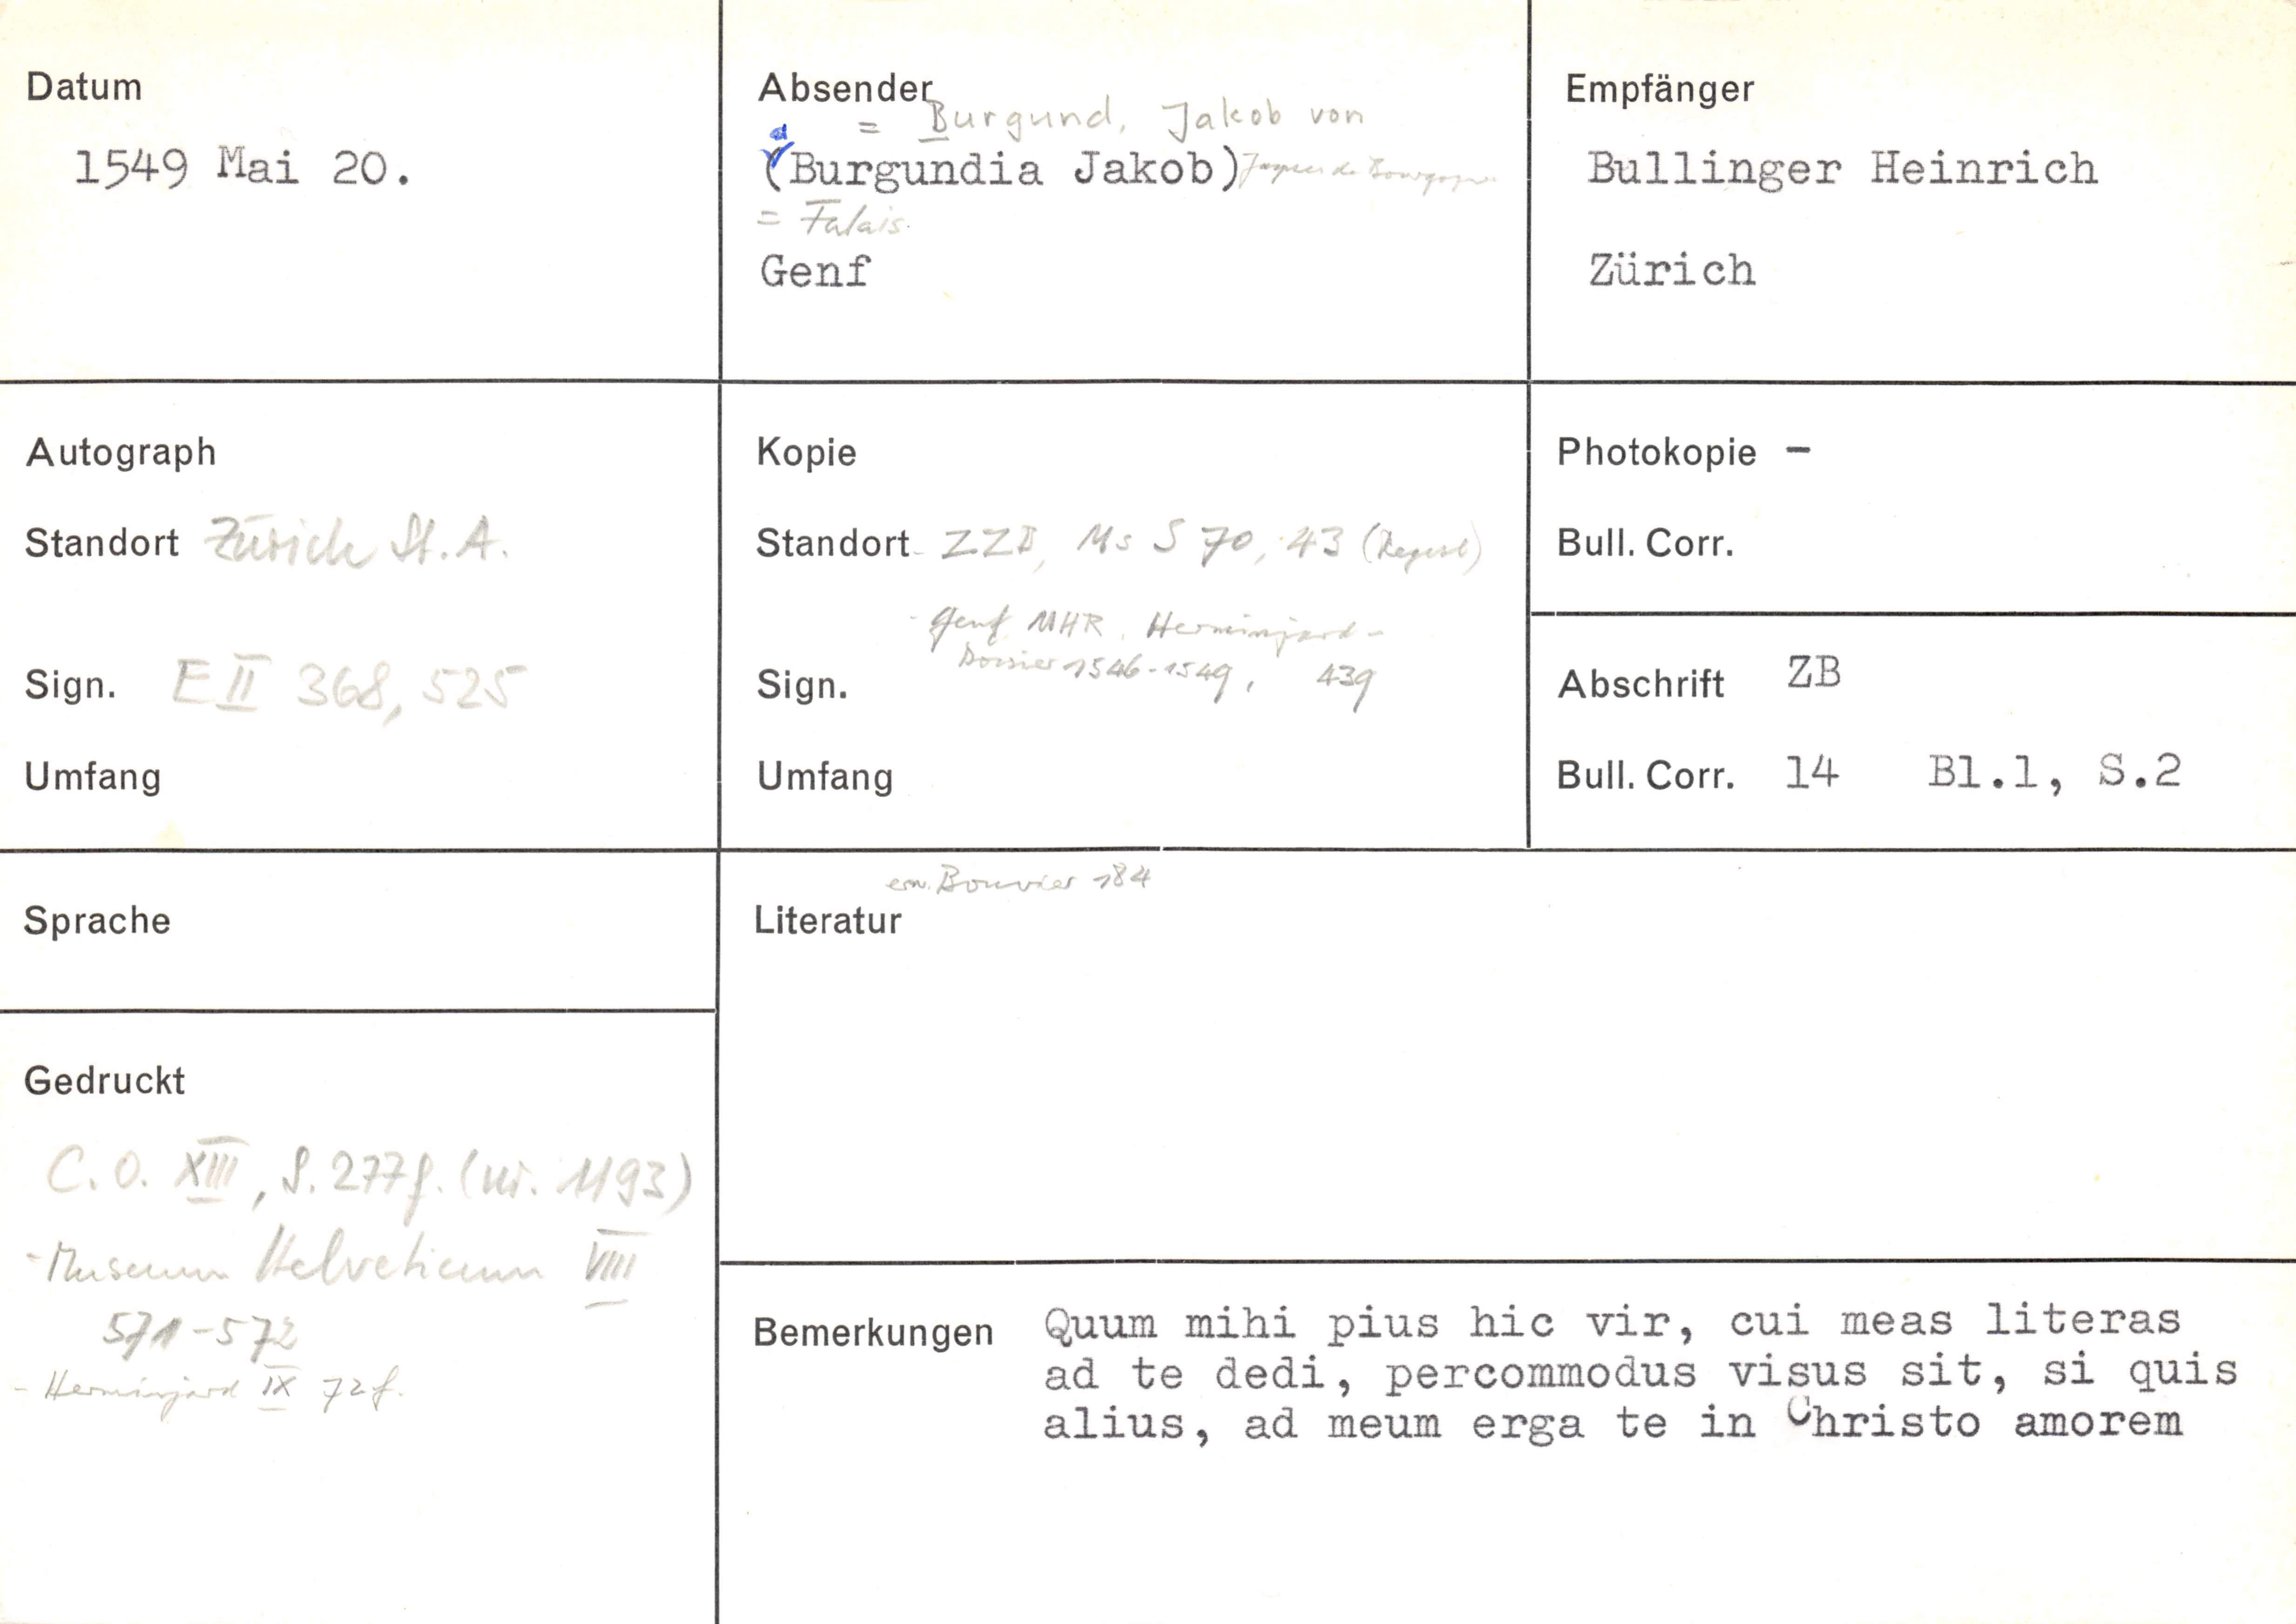 Datum
1549 Mai 20.
Absender
= Burgund, Jakob von
(Burgundia Jakob) Jaques de Bourgogne
= Falais.
Genf
Empfänger
Bullinger Heinrich
Zürich
Autograph
Standort Zürich St. A.
Sign. E II 368, 525
Umfang
Kopie
Standort ZZB, Ms S 70, 43 (Regest)
- Genf MHR, Herminjard-
Dossier 1546-1549, 439
Sign.
Umfang
Photokopie -
Bull. Corr.
Abschrift ZB
Bull. Corr. 14 Bl.1, S.2
Sprache
erw. Bouvier 184
Literatur
Gedruckt
C. O. XIII, S. 277f. (nr. 1193)
- Museum Helveticum VIII
571-572
- Herminjard IX 72f.
Bemerkungen Quum mihi pius hic vir, cui meas literas
ad te dedi, percommodus visus sit, si quis
alius, ad meum erga te in Christo amorem